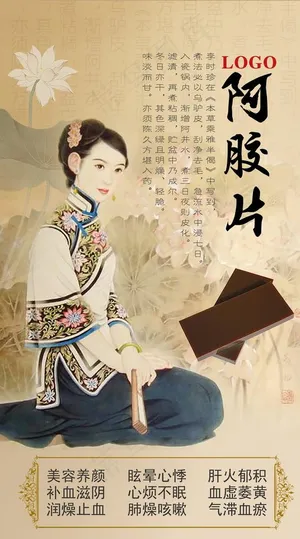 LOGO
阿胶片
李时珍在《本草乘雅半偈》中写到,
煮法必以乌驴皮,刮净去毛,急流水中浸七日,
入瓷锅内,渐增阿井水,煮三日夜则皮化,
滤清,再煮稠,贮盆中乃成尔。
冬日亦干,其色深绿且明燥,轻脆,
味淡而甘,亦须陈久方堪入药。
美容养颜 眩晕心悸 肝火郁积
补血滋阴 心烦不眠 血虚萎黄
润燥止血 肺燥咳嗽 气滞血瘀